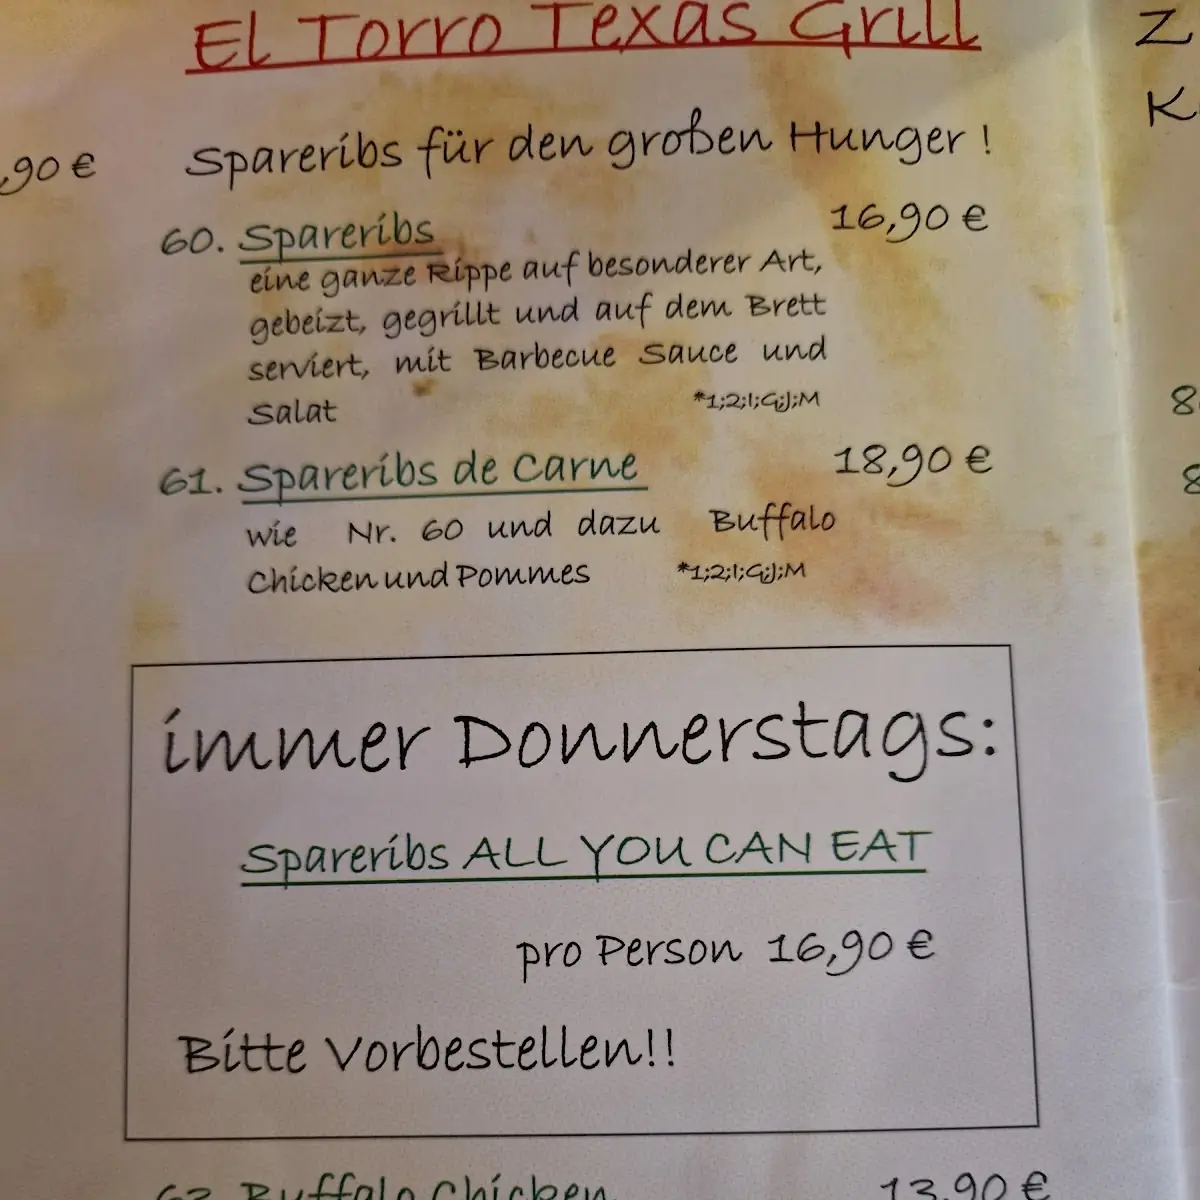 El Torro Texas Grill
,90 €
Spareribs für den großen Hunger !
60. Spareribs 16,90 €
eine ganze Rippe auf besonderer Art,
gebeizt, gegrillt und auf dem Brett
serviert, mit Barbecue Sauce und
Salat *1;2;I;G;J;M
61. Spareribs de Carne 18,90 €
wie Nr. 60 und dazu Buffalo
Chicken und Pommes *1;2;I;G;J;M
immer Donnerstags:
Spareribs ALL YOU CAN EAT
pro Person 16,90 €
Bitte Vorbestellen!!
Buffalo Chicken 13,90 €
Z
K
8
8